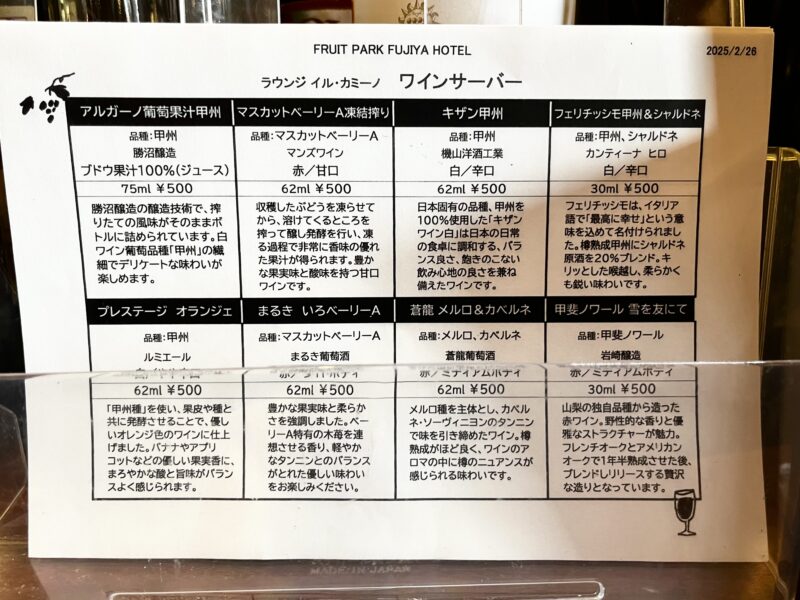 FRUIT PARK FUJIYA HOTEL
2025/2/26
ラウンジ イル・カミーノ ワインサーバー
アルガーノ葡萄果汁甲州
品種:甲州
勝沼醸造
ブドウ果汁100%(ジュース)
75ml ¥500
勝沼醸造の醸造技術で、搾
りたての風味がそのままボ
トルに詰められています。白
ワイン葡萄品種「甲州」の繊
細でデリケートな味わいが
楽しめます。
マスカットベーリーA凍結搾り
品種:マスカットベーリーA
マンズワイン
赤/甘口
62ml ¥500
収穫したぶどうを凍らせて
から、溶けてくるところを
搾って醸し発酵を行い、凍
る過程で非常に香味の優れ
た果汁が得られます。豊か
な果実味と酸味を持つ甘口
ワインです。
キザン甲州
品種:甲州
機山洋酒工業
白/辛口
62ml ¥500
日本固有の品種、甲州を
100%使用した「キザン
ワイン白」は日本の日常
の食卓に調和する、バ
ランス良さ、飽きのこない
飲み心地の良さを兼ね
備えたワインです。
フェリチッシモ甲州&シャルドネ
品種:甲州、シャルドネ
カンティーナ ヒロ
白/辛口
30ml ¥500
フェリチッシモは、イタリア
語で「最高に幸せ」という意
味を込めて名付けられまし
た。樽熟成甲州にシャルドネ
原酒を20%ブレンド。キ
リッとした喉越し、柔らかく
も鋭い味わいです。
プレステージ オランジェ
品種:甲州
ルミエール
62ml ¥500
「甲州種」を使い、果皮や種と
共に発酵させることで、優し
いオレンジ色のワインに仕上
げました。バナナやアプリ
コットなどの優しい果実香に、
まろやかな酸と旨味がバラン
スよく感じられます。
まるき いろベーリーA
品種:マスカットベーリーA
まるき葡萄酒
赤/ライトボディ
62ml ¥500
豊かな果実味と柔らか
さを強調しました。ベー
リーA特有の木苺を連
想させる香り、軽やか
なタンニンとのバランス
がとれた優しい味わい
をお楽しみください。
蒼龍 メルロ&カベルネ
品種:メルロ、カベルネ
蒼龍葡萄酒
赤/ミディアムボディ
62ml ¥500
メルロ種を主体とし、カベル
ネ・ソーヴィニヨンのタンニン
で味を引き締めたワイン。樽
熟成がほど良く、ワインのア
ロマの中に樽のニュアンスが
感じられる味わいです。
甲斐ノワール 雪を友にて
品種:甲斐ノワール
岩崎醸造
赤/ミディアムボディ
30ml ¥500
山梨の独自品種から造った
赤ワイン。野性的な香りと優
雅なストラクチャーが魅力。
フレンチオークとアメリカン
オークで1年半熟成させた後、
ブレンドしリリースする贅沢
な造りとなっています。
MADE IN JAPAN